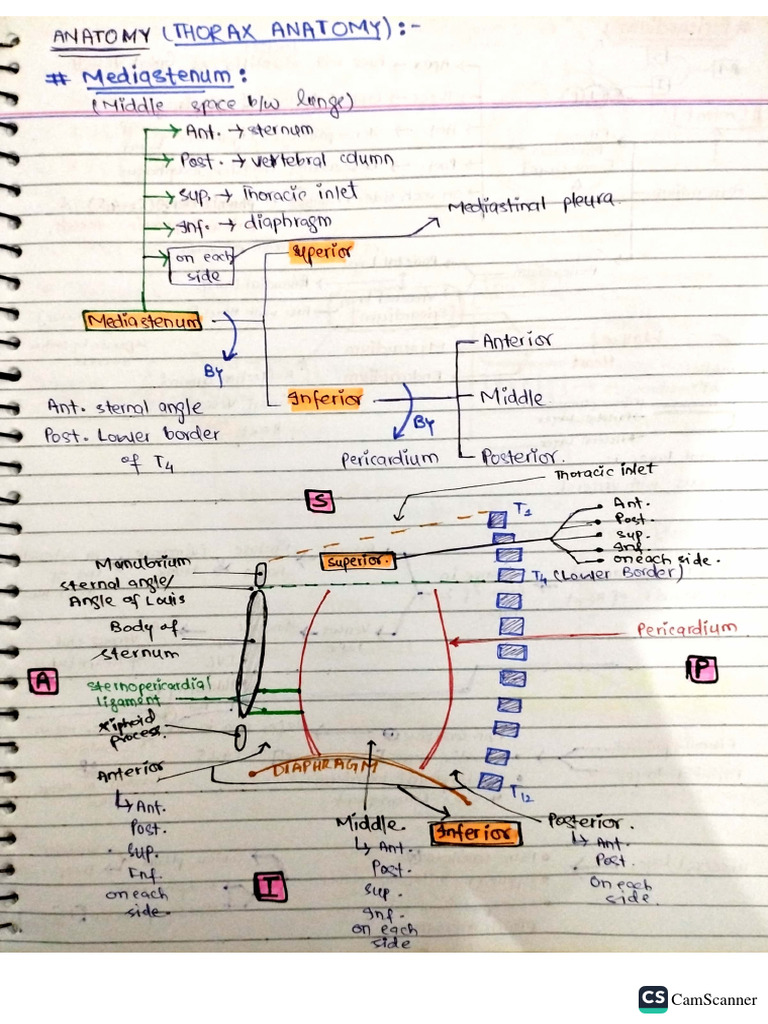 ANATOMY (THORAX ANATOMY):-
# Mediastenum:
(Middle space b/w lungs)
Ant. → sternum
Post. → vertebral column
Sup. → Thoracic inlet
Inf. → diaphragm
on each side
Mediastinal pleura
Superior
Mediastenum
By
Ant. sternal angle
Post. Lower border
of T4
Inferior
By
Pericardium
Anterior
Middle
Posterior.
Thoracic inlet
S
T1
Ant.
Post.
Sup.
Inf.
on each side.
Superior.
T4 (Lower Border)
Manubrium
sternal angle/
Angle of Louis
Body of
sternum
Pericardium
A
P
sternopericardial
ligament
xiphoid
process.
DIAPHRAGM
T12
Anterior
↳ Ant.
Post.
Sup.
Inf.
on each
side.
I
Middle.
↳ Ant.
Post.
Sup.
Inf.
on each
side
Inferior
Posterior.
↳ Ant.
Post.
on each
side.
CS CamScanner